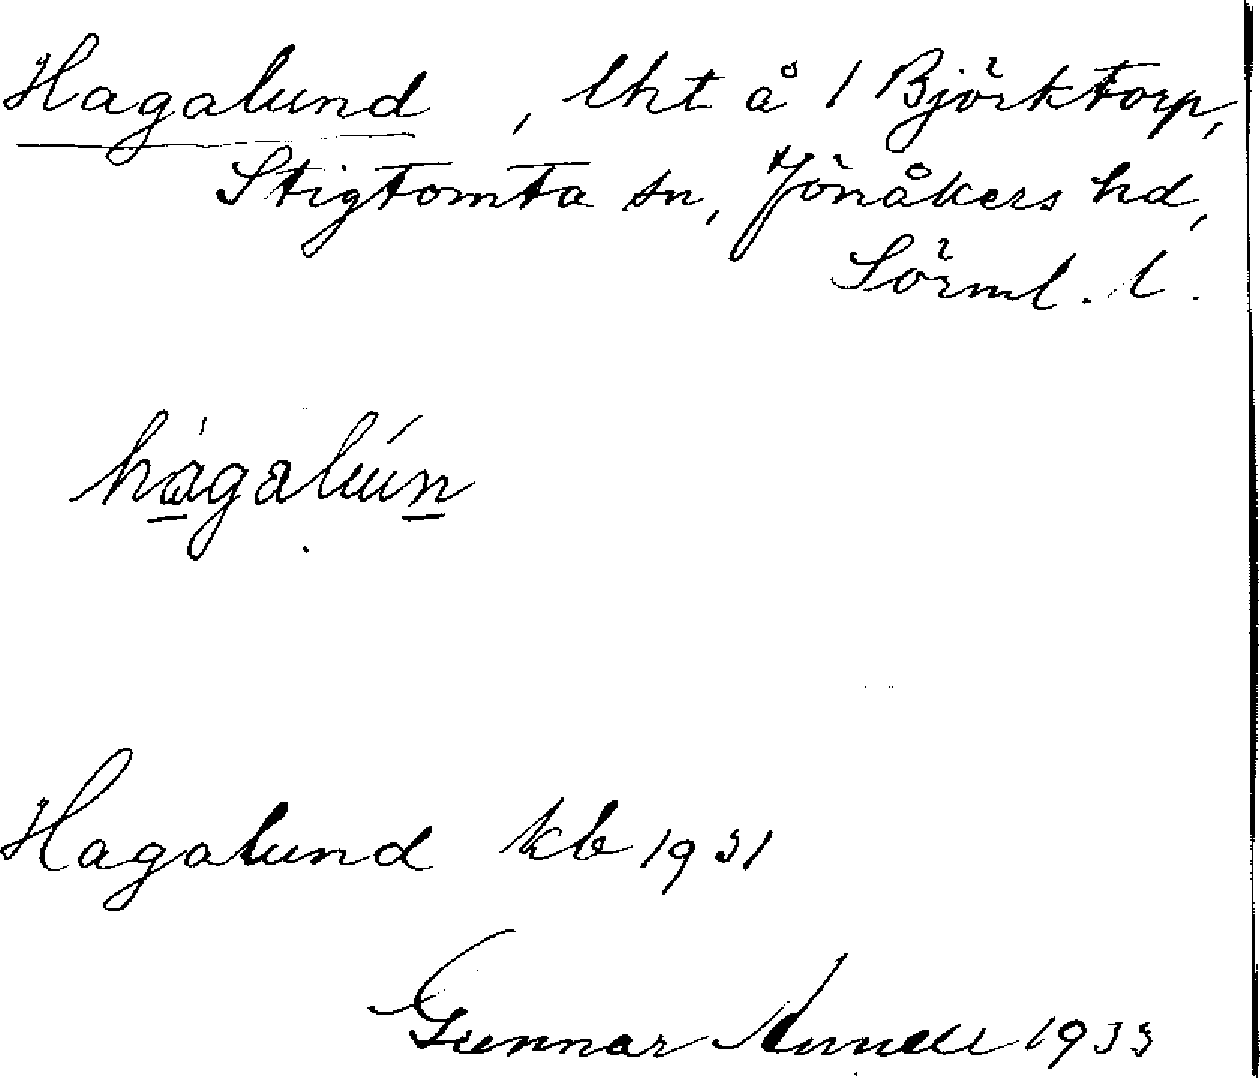 Hagalund, lht å 1 Björktorp,
Stigtomta sn, Jönåkers hd,
Sörml. l.
hàgalún
Hagalund kb 1931
Gunnar 1933